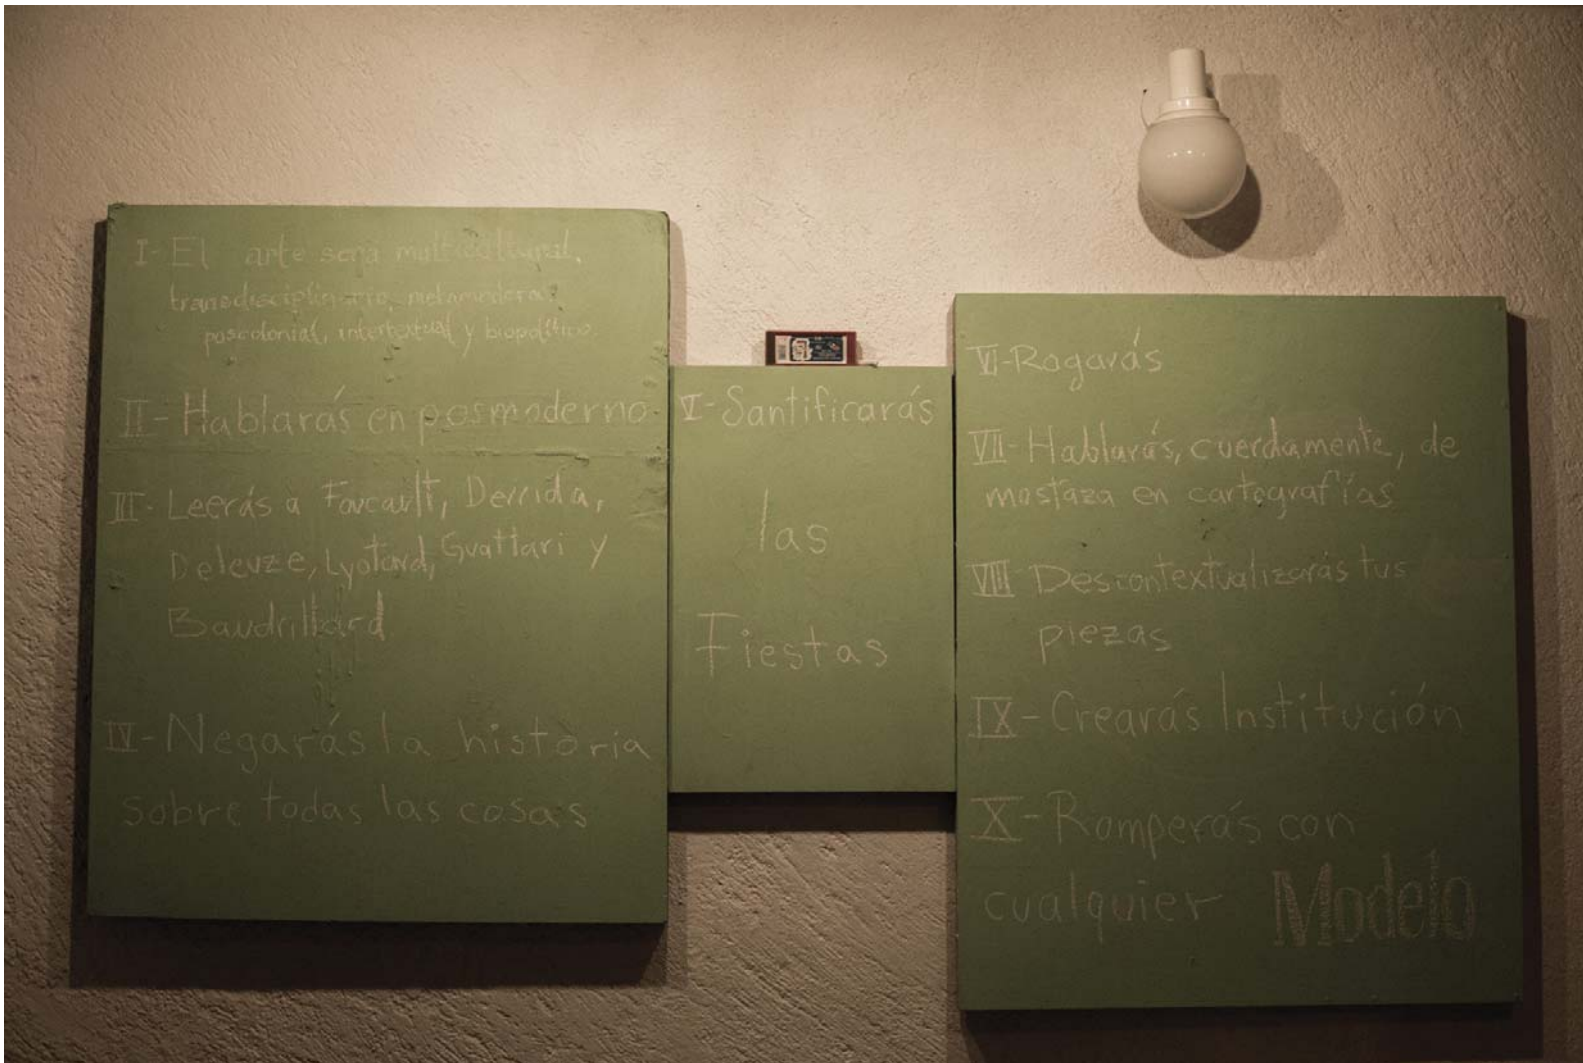 I- El arte será multicultural,
transdisciplinario, metamoderno,
poscolonial, intertextual y biopolítico.
II- Hablarás en posmoderno
III- Leerás a Foucault, Derrida,
Deleuze, Lyotard, Guattari y
Baudrillard
IV- Negarás la historia
sobre todas las cosas
V- Santificarás
las
Fiestas
VI- Rogarás
VII- Hablarás, cuerdamente, de
mostaza en cartografías
VIII- Descontextualizarás tus
piezas
IX- Crearás Institución
X- Romperás con
cualquier Modelo